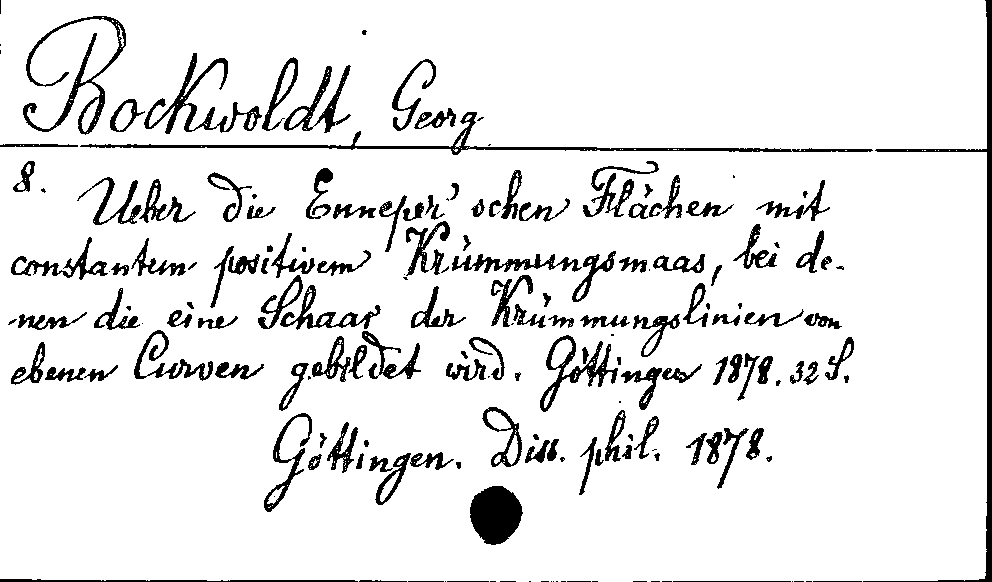 Bockwoldt, Georg
8. Ueber die Enneper'schen Flächen mit
constantem positivem Krümmungsmaas, bei de-
nen die eine Schaar der Krümmungslinien von
ebenen Curven gebildet wird. Göttingen 1878. 32 S.
Göttingen. Diss. phil. 1878.